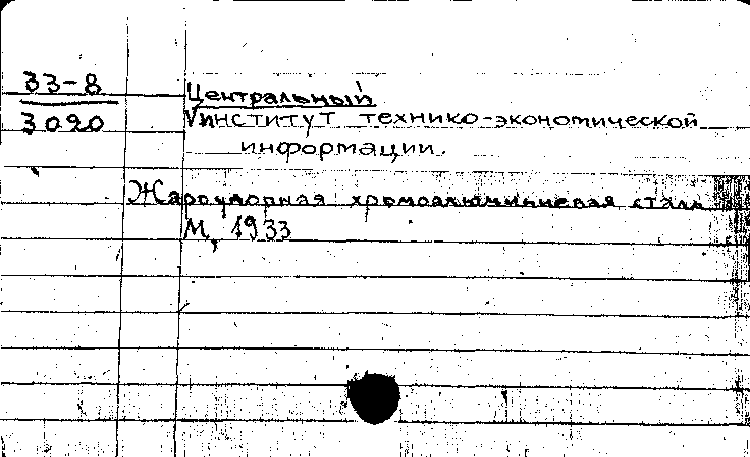 33-8
3020
Центральный
Институт технико-экономической
информации.
Жароупорная хромоалюминиевая сталь
М, 1933